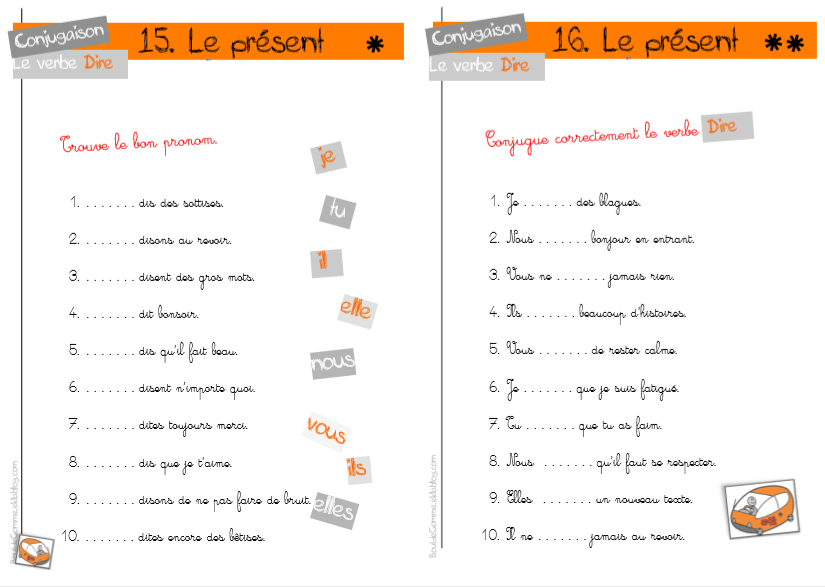 Conjugaison
15. Le présent *
Le verbe Dire
Trouve le bon pronom.
je
tu
il
elle
nous
vous
ils
elles
1. ........ dis des sottises.
2. ........ disons au revoir.
3. ........ disent des gros mots.
4. ........ dit bonsoir.
5. ........ dis qu'il fait beau.
6. ........ disent n'importe quoi.
7. ........ dites toujours merci.
8. ........ dis que je t'aime.
9. ........ disons de ne pas faire de bruit.
10. ........ dites encore des bêtises.
Conjugaison
16. Le présent **
Le verbe Dire
Conjugue correctement le verbe Dire
1. Je ....... des blagues.
2. Nous ....... bonjour en entrant.
3. Vous ne ....... jamais rien.
4. Ils ....... beaucoup d'histoires.
5. Vous ....... de rester calme.
6. Je ....... que je suis fatigué.
7. Tu ....... que tu as faim.
8. Nous ....... qu'il faut se respecter.
9. Elles ....... un nouveau texte.
10. Il ne ....... jamais au revoir.